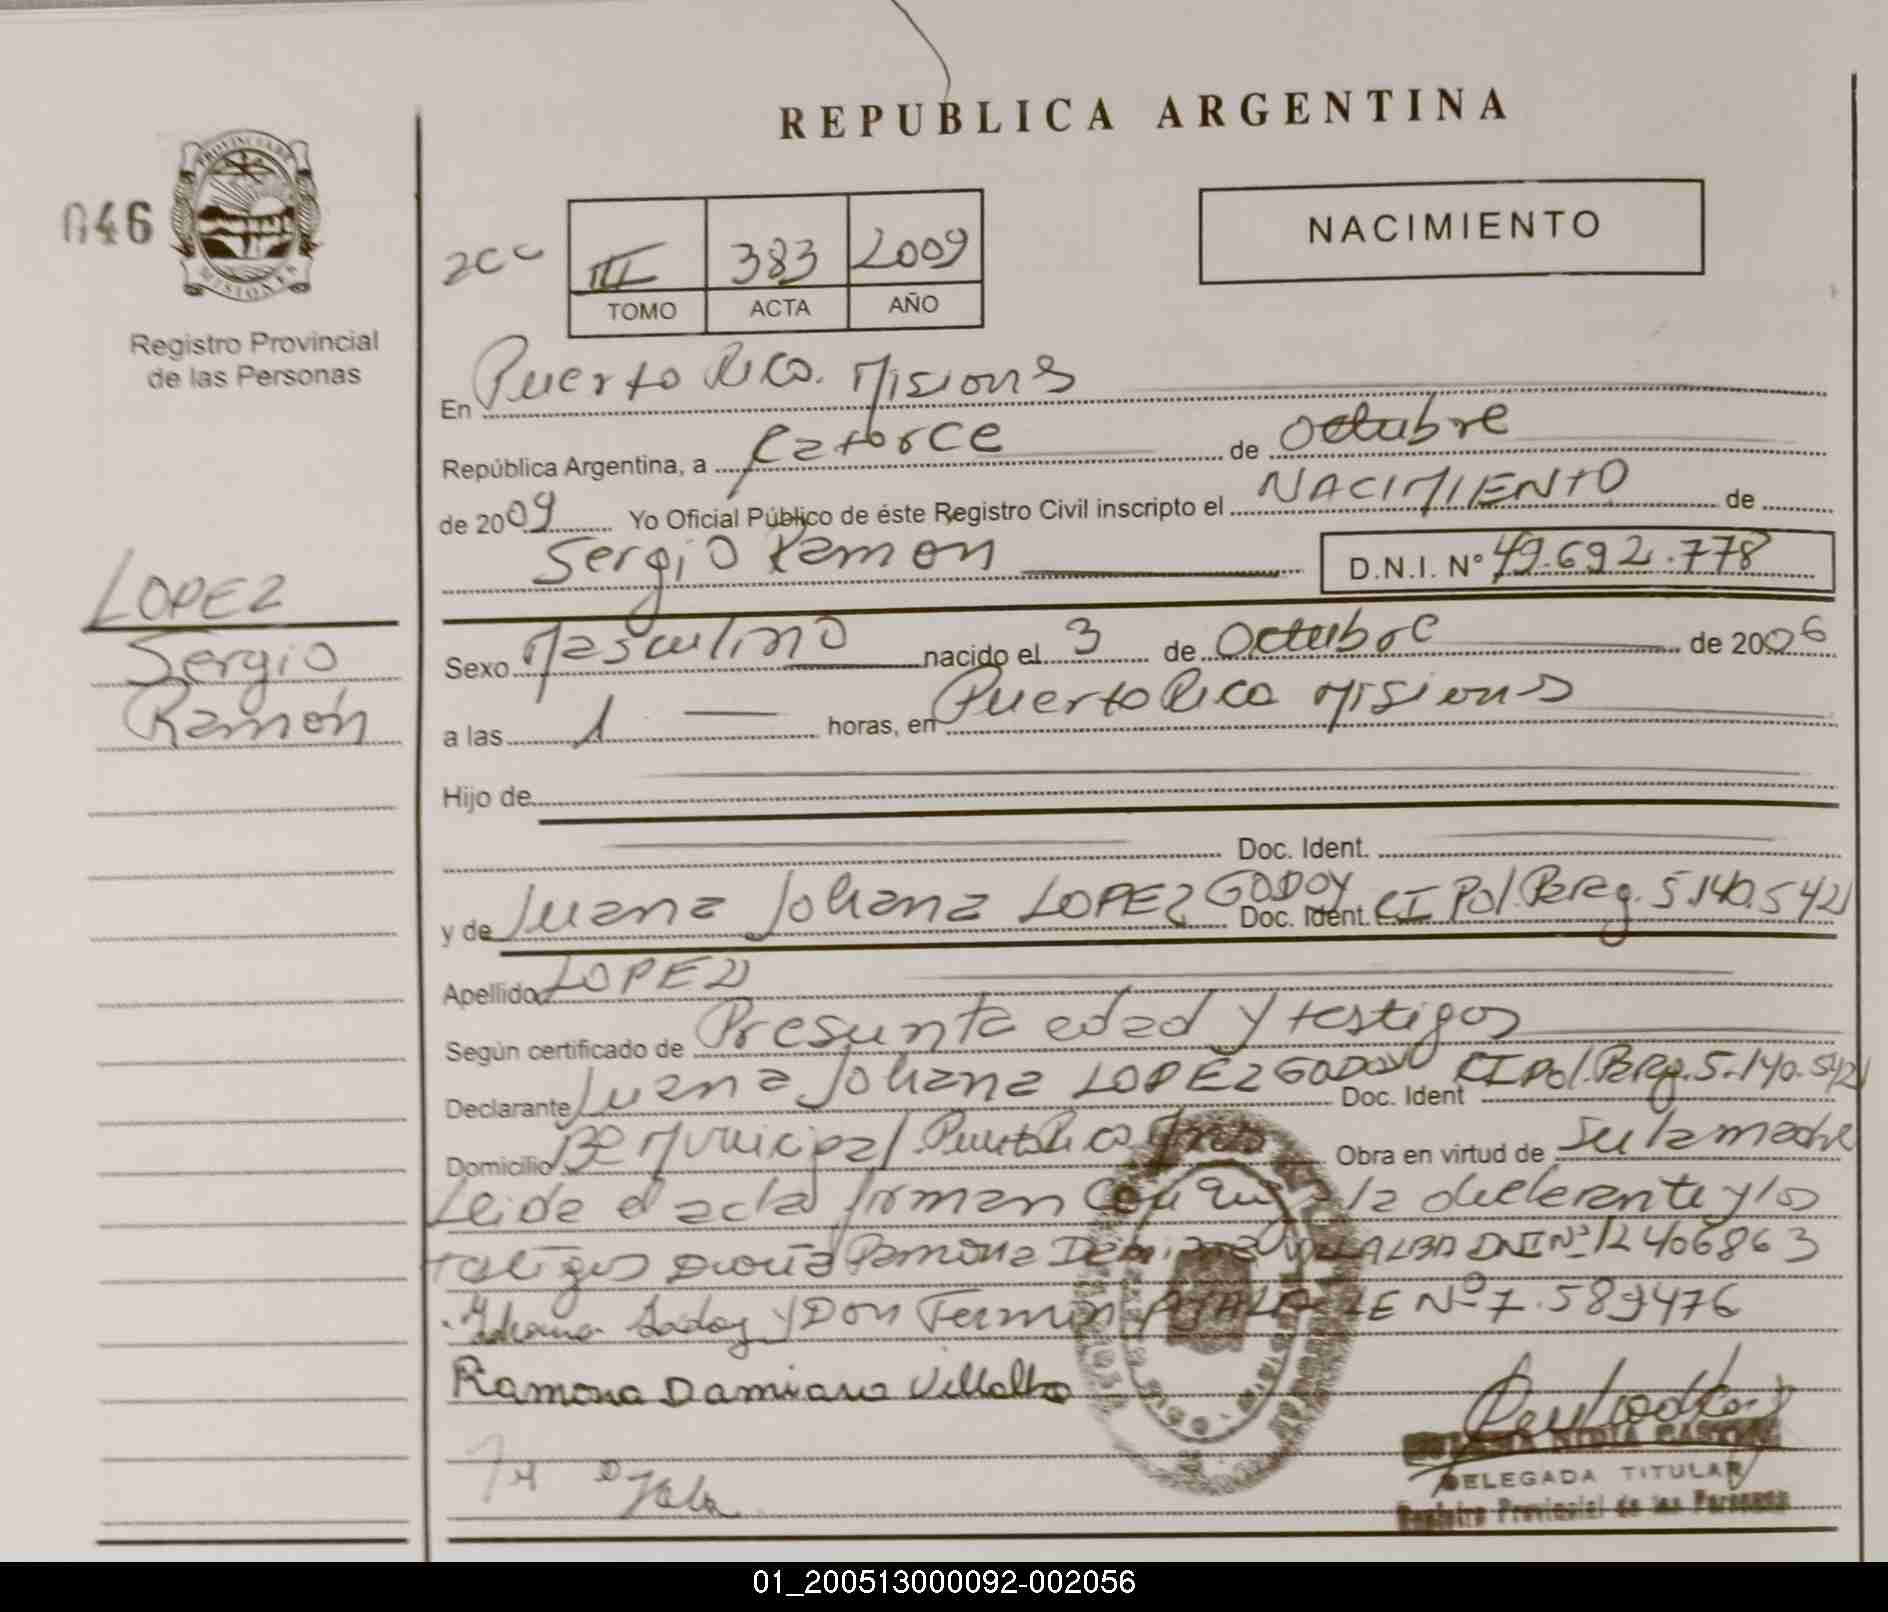 REPUBLICA ARGENTINA
046
PROVINCIA DE
MISIONES
Registro Provincial
de las Personas
III 383 2009
TOMO ACTA AÑO
NACIMIENTO
En Puerto Rico. Misiones
República Argentina, a catorce de octubre
de 2009 Yo Oficial Público de éste Registro Civil inscripto el NACIMIENTO de
Sergio Ramon D.N.I. N° 49.692.778
LOPEZ
Sergio
Ramón
Sexo Masculino nacido el 3 de Octubre de 2006
a las 1 horas, en Puerto Rico Misiones
Hijo de
Doc. Ident.
y de Juana Johana LOPEZ GODOY Doc. Ident. CI Pol. Parag. 5.140.542
Apellido LOPEZ
Según certificado de Presunta edad y testigos
Declarante Juana Johana LOPEZ GODOY Doc. Ident CI Pol. Parag. 5.140.542
Domicilio Bº Municipal Puerto Rico Obra en virtud de Ser la madre
Leida el acta firman la declarante y los
testigos Doña Ramona Damiana VILLALBA DNI Nº 12406863
Johana Godoy y Don Fermin AYALA LE Nº 7.589476
Ramona Damiana Villalba
Ayala
DELEGADA TITULAR
Registro Provincial de las Personas
01_200513000092-002056